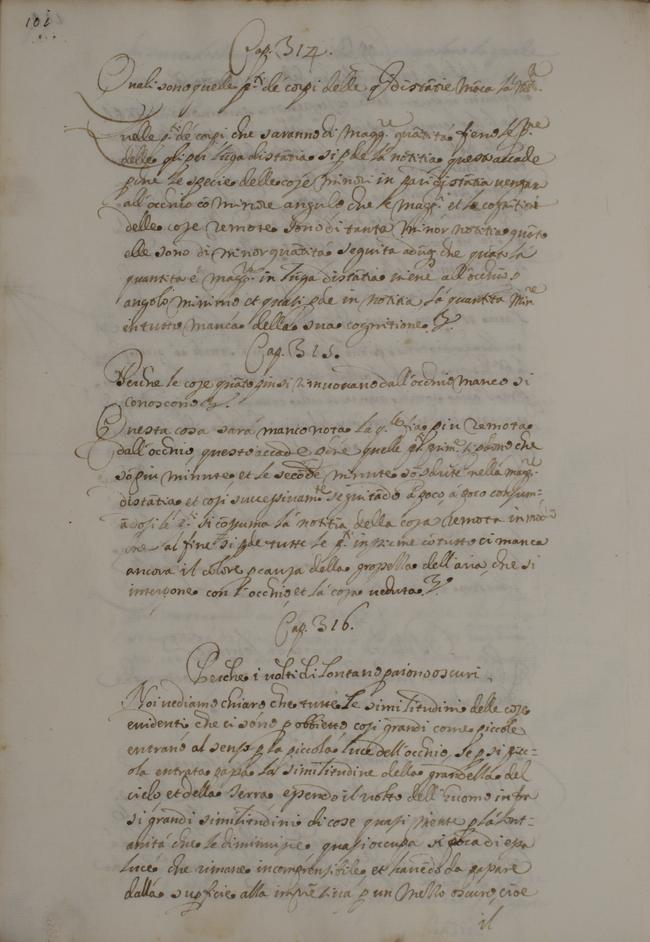 101
Cap. 314.
Quali sono quelle p.ti de corpi delle q.li p distatie māca la not.a
Quelle p.ti de corpi che saranno di magg.re quātità fieno le p.
delle q.li per luga distātia si pde la notitia questo accade
pche le spetie delle cose minori in pari distātia uengan
all'occhio cō minore angulo che le magg.i et le cognitioni
delle cose remote sono di tanta minor notitia quāto
elle sono di minor quātità seguita adūq. che quāto la
quantità è magg.re in lūga distātia uiene all'occhio p
angolo minimo et quasi pde in notitia la quantità
in tutto manca della sua cognitione.
Cap. 315.
Perche le cose quāto piu si rimuouano dall'occhio manco si
conoscono.
Questa cosa sarà manco nota la q.le fia piu remota
dall'occhio questo accade pche quelle p.ti prim.e si pdono che
sō piu minute et le seconde minute sō pdute nella magg.re
distātia et cosi successiuam.te seguitādo à poco, à poco consum-
ādosi le p.ti si cōsuma la notitia della cosa remota in modo
che al fine si pde tutte le p.ti insieme col tutto et manca
ancora il colore p causa della grossezza dell'aria, che si
interpone con l'occhio, et la cosa ueduta.
Cap. 316.
Perche i uolti di lontano paiono oscuri.
Noi uediamo chiaro che tutte le similitudini delle cose
euidenti che ci sono p obbietto cosi grandi come piccole
entrano al senso p la piccola luce dell'occhio se p si pic-
ola entrata passa la similitudine della grandezza del
cielo et della terra essendo il uolto dell'huomo infra
si grandi similitudini di cose quasi niente p la lont-
anità che lo diminuisce quasi occupa si poca di essa
luce che rimane incōprensibile et hauēdo da passare
dalla supficie alla impressiua p un mezzo oscuro, cioè
il